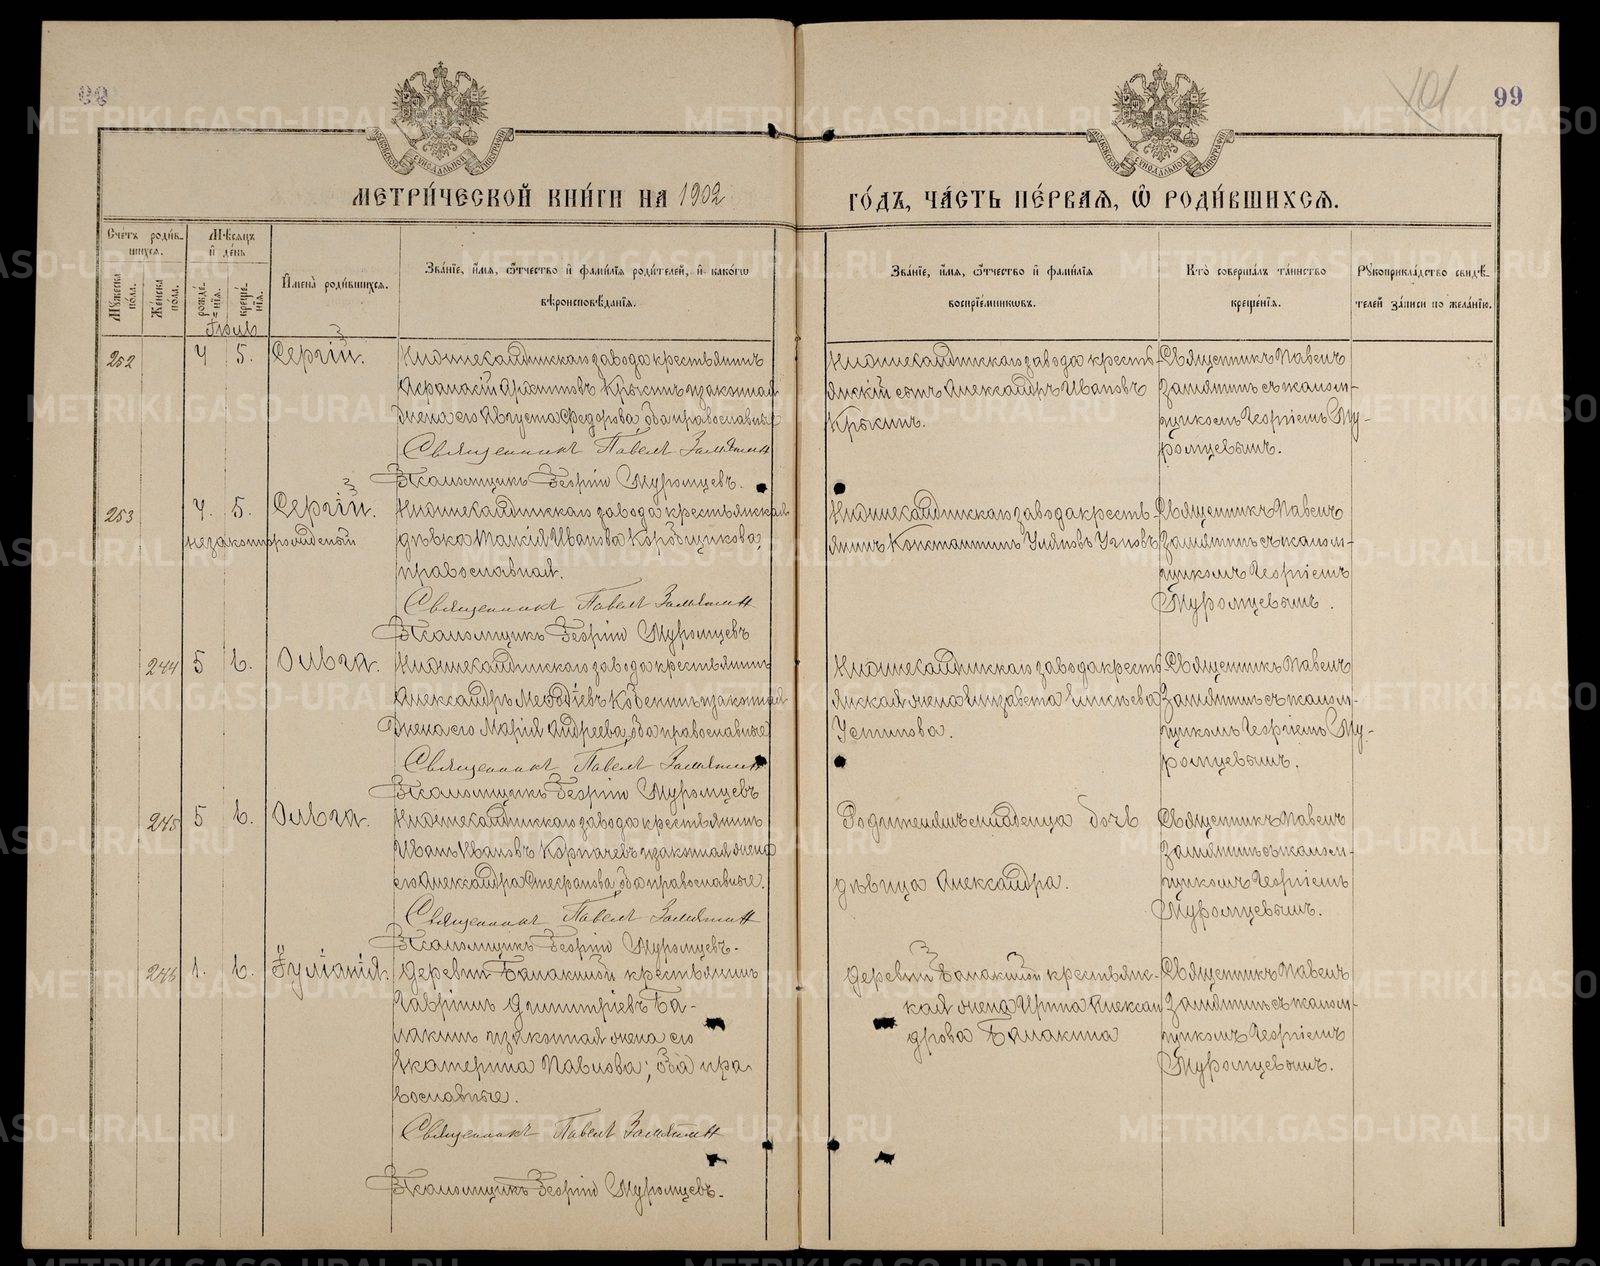 99
101
99
МОСКОВСКОЙ СѴНОДАЛЬНОЙ ТИПОГРАФІИ
МОСКОВСКОЙ СѴНОДАЛЬНОЙ ТИПОГРАФІИ
МЕТРИ́ЧЕСКОЙ КНИ́ГИ НА 1902
ГО́ДЪ, ЧА́СТЬ ПЕ́РВАЯ, Ѡ҆ РОДИ́ВШИХСЯ.
Сче́тъ роди́в-
шихся.
Му́жеска по́ла.
Же́нска по́ла.
Мѣ́сяцъ
и҆ де́нь
рожде́-
нїя.
креще́-
нїя.
И҆мена̀ роди́вшихся.
Зва́нїе, и҆́мя, ѻ҆́тчество и҆ фами́лїя роди́телей, и҆ како́гѡ
вѣроисповѣ́данїя.
Зва́нїе, и҆́мя, ѻ҆́тчество и҆ фами́лїя
воспрїе́мниковъ.
Кто̀ соверша́лъ та́инство
креще́нїя.
Рꙋкоприкла́дство свидѣ́-
телей за́писи по жела́нїю.
Іюль
252
4 5. Сергій.
Нижнесалдинскаго завода крестьянинъ
Афанасій Архиповъ Крысинъ и законная
жена его Августа Федорова, оба православные
Священникъ Павелъ Замятин
Псаломщикъ Георгій Муромцевъ.
Нижнесалдинскаго завода кресть-
янскій сынъ Александръ Ивановъ
Крысинъ.
Священникъ Павелъ
Замятинъ съ псалом-
щикомъ Георгіемъ Му-
ромцевымъ.
253
4. 5. Сергій.
незаконнорожденый
Нижнесалдинскаго завода крестьянская
дѣвка Иванова Коробщикова,
православная.
Священникъ Павелъ Замятин
Псаломщикъ Георгій Муромцевъ
Нижнесалдинскаго завода кресть-
янинъ Константинъ
Священникъ Павелъ
Замятинъ съ псалом-
щикомъ Георгіемъ
Муромцевымъ.
244
5 6. Ольга.
Нижнесалдинскаго завода крестьянинъ
Александръ Меѳодіевъ и законная
жена его Марія Андреева, оба православные
Священникъ Павелъ Замятин
Псаломщикъ Георгій Муромцевъ
Нижнесалдинскаго завода кресть-
янская жена Елизавета
Устинова.
Священникъ Павелъ
Замятинъ съ псалом-
щикомъ Георгіемъ Му-
ромцевымъ.
245
5 6. Ольга.
Нижнесалдинскаго завода крестьянинъ
Иванъ Ивановъ Корпачевъ и законная жена
его Александра Стефанова, оба православные.
Священникъ Павелъ Замятин
Псаломщикъ Георгій Муромцевъ.
Родителямъ младенца дочь
дѣвица Александра.
Священникъ Павелъ
Замятинъ съ псалом-
щикомъ Георгіемъ
Муромцевымъ.
246
1. 6. Іуліанія.
деревни Балакиной крестьянинъ
Гавріилъ Димитріевъ Ба-
лакинъ и законная жена его
Екатерина Павлова; оба пра-
вославные.
Священникъ Павелъ Замятин
Псаломщикъ Георгій Муромцевъ.
деревни Балакиной крестьянс-
кая жена Ирина Алексан
дрова Балакина
Священникъ Павелъ
Замятинъ съ псалом-
щикомъ Георгіемъ
Муромцевымъ.
METRIKI.GASO-URAL.RU